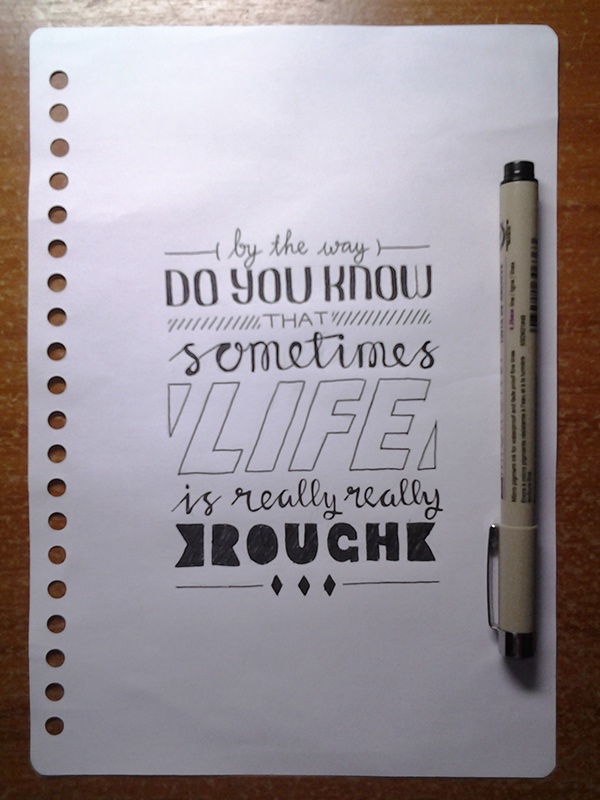 ( by the way )
DO YOU KNOW
THAT
sometimes
LIFE
is really really
ROUGH